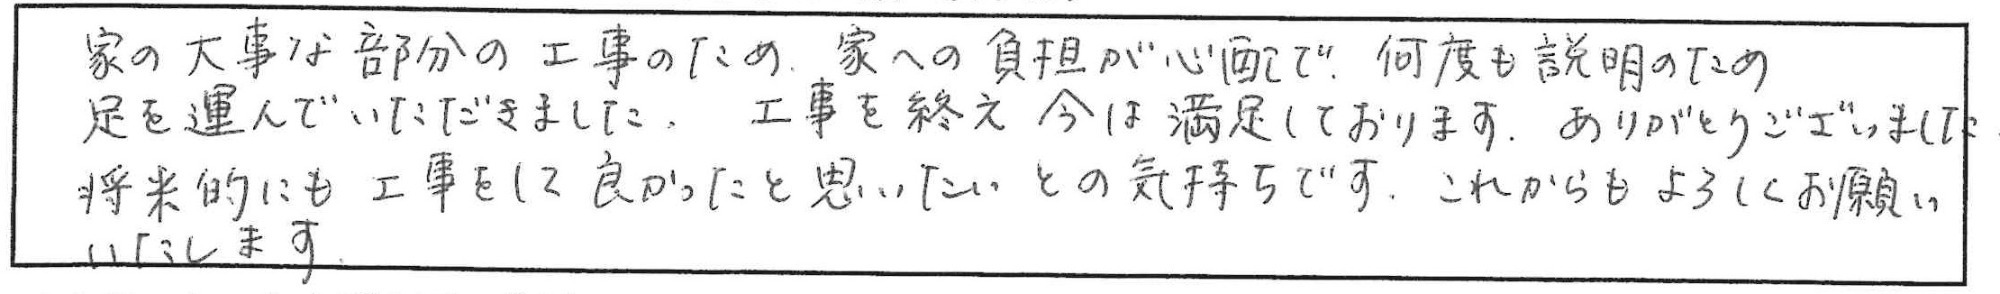 家の大事な部分の工事のため、家への負担が心配で、何度も説明のため
足を運んでいただきました。 工事を終え今は満足しております。ありがとうございました。
将来的にも工事をして良かったと思いたいとの気持ちです。これからもよろしくお願い
いたします。